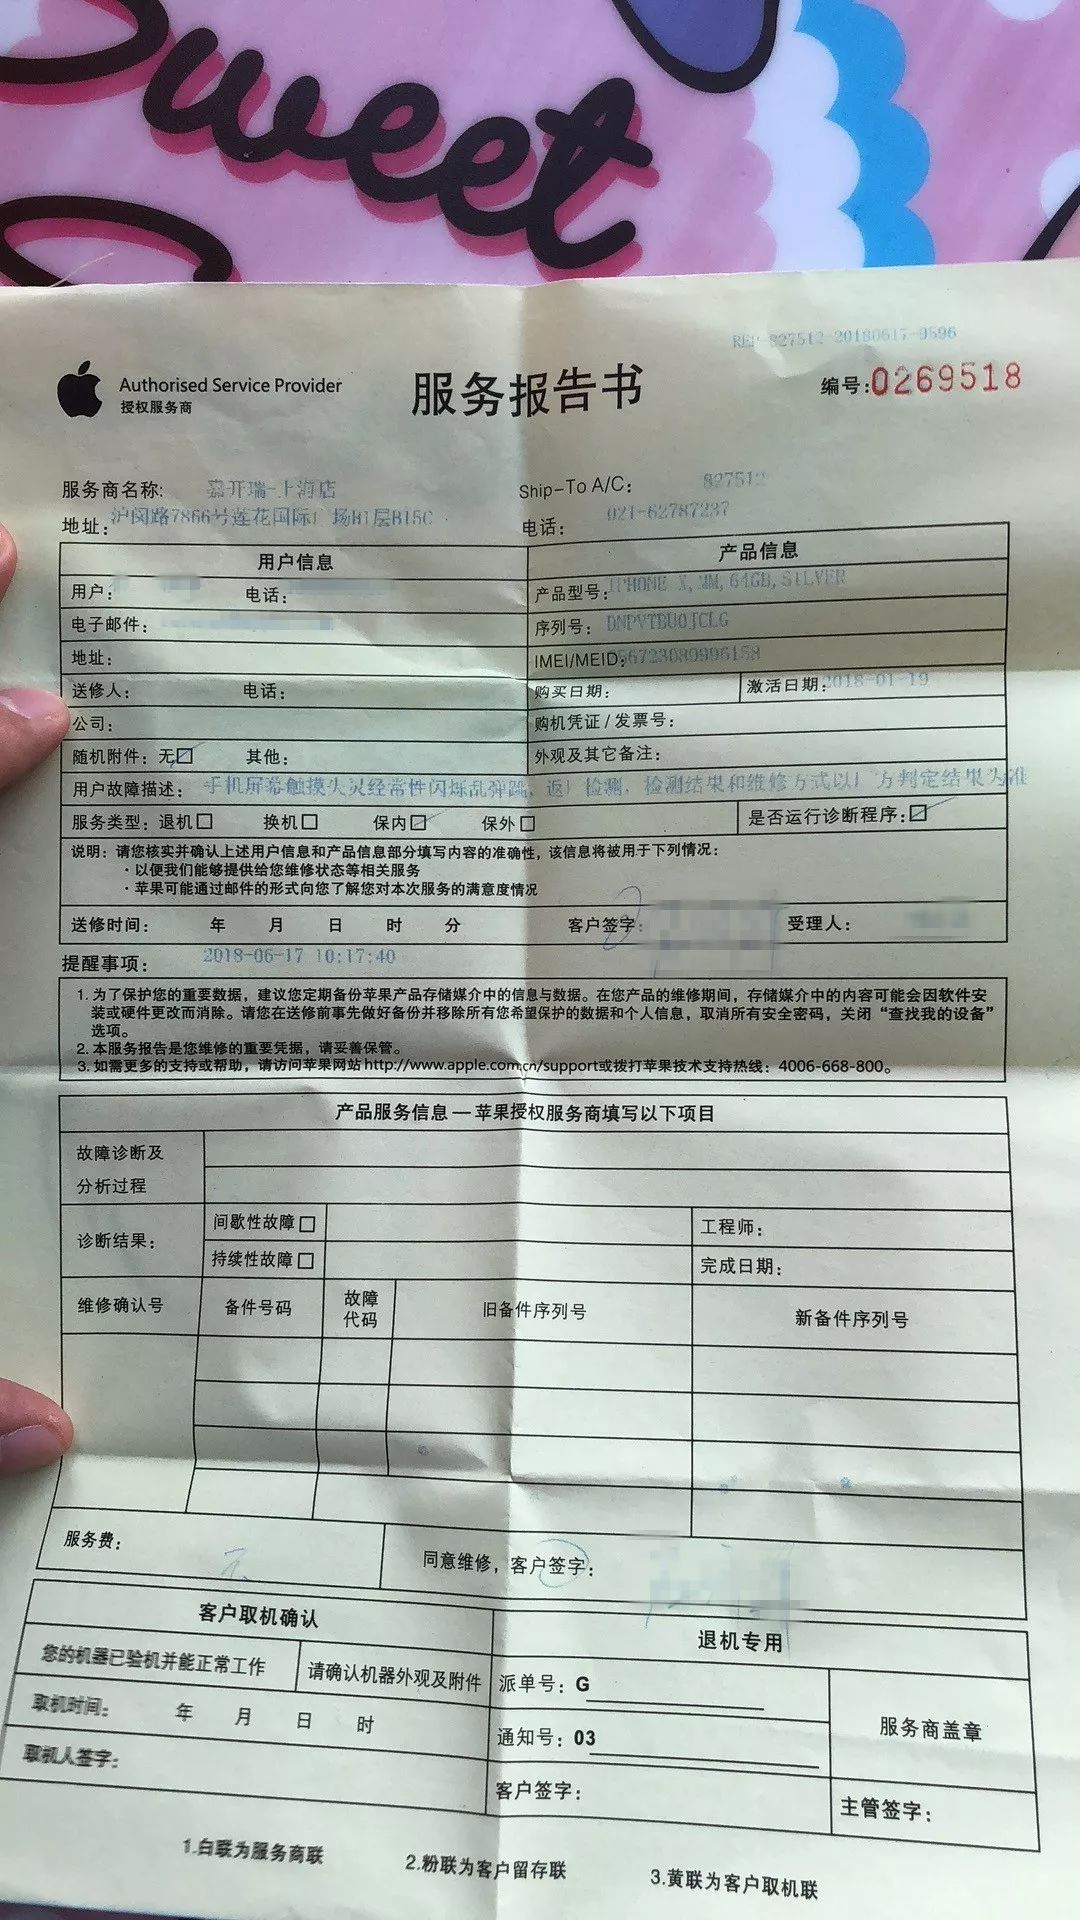 Sweet
REP-827512-20180617-9596
Authorised Service Provider
授权服务商
服务报告书
编号:0269518
服务商名称: 嘉开瑞-上海店
Ship-To A/C: 827512
地址: 沪闵路7866号莲花国际广场B1层B15C
电话: 021-62787237
用户信息
产品信息
用户:
电话:
产品型号: IPHONE X,MM,64GB,SILVER
电子邮件:
序列号: DNPVTBU0JCLG
地址:
IMEI/MEID: 356723089996158
送修人:
电话:
购买日期:
激活日期: 2018-01-19
公司:
购机凭证/发票号:
随机附件: 无☑ 其他:
外观及其它备注:
用户故障描述: 手机屏幕触摸失灵经常性闪烁乱弹跳, 返厂检测, 检测结果和维修方式以厂方判定结果为准
服务类型: 退机□ 换机□ 保内☑ 保外□
是否运行诊断程序:☑
说明: 请您核实并确认上述用户信息和产品信息部分填写内容的准确性, 该信息将被用于下列情况:
·以便我们能够提供给您维修状态等相关服务
·苹果可能通过邮件的形式向您了解您对本次服务的满意度情况
送修时间: 年 月 日 时 分
客户签字:
受理人:
2018-06-17 10:17:40
提醒事项:
1. 为了保护您的重要数据, 建议您定期备份苹果产品存储媒介中的信息与数据。在您产品的维修期间, 存储媒介中的内容可能会因软件安
装或硬件更改而消除。请您在送修前事先做好备份并移除所有您希望保护的数据和个人信息, 取消所有安全密码, 关闭“查找我的设备”
选项。
2. 本服务报告是您维修的重要凭据, 请妥善保管。
3. 如需更多的支持或帮助, 请访问苹果网站http://www.apple.com.cn/support或拨打苹果技术支持热线: 4006-668-800。
产品服务信息—苹果授权服务商填写以下项目
故障诊断及
分析过程
诊断结果:
间歇性故障□
工程师:
持续性故障□
完成日期:
维修确认号
备件号码
故障
代码
旧备件序列号
新备件序列号
服务费:
元
同意维修, 客户签字:
客户取机确认
退机专用
您的机器已验机并能正常工作
请确认机器外观及附件
派单号: G
取机时间: 年 月 日 时
通知号: 03
服务商盖章
取机人签字:
客户签字:
主管签字:
1.白联为服务商联
2.粉联为客户留存联
3.黄联为客户取机联